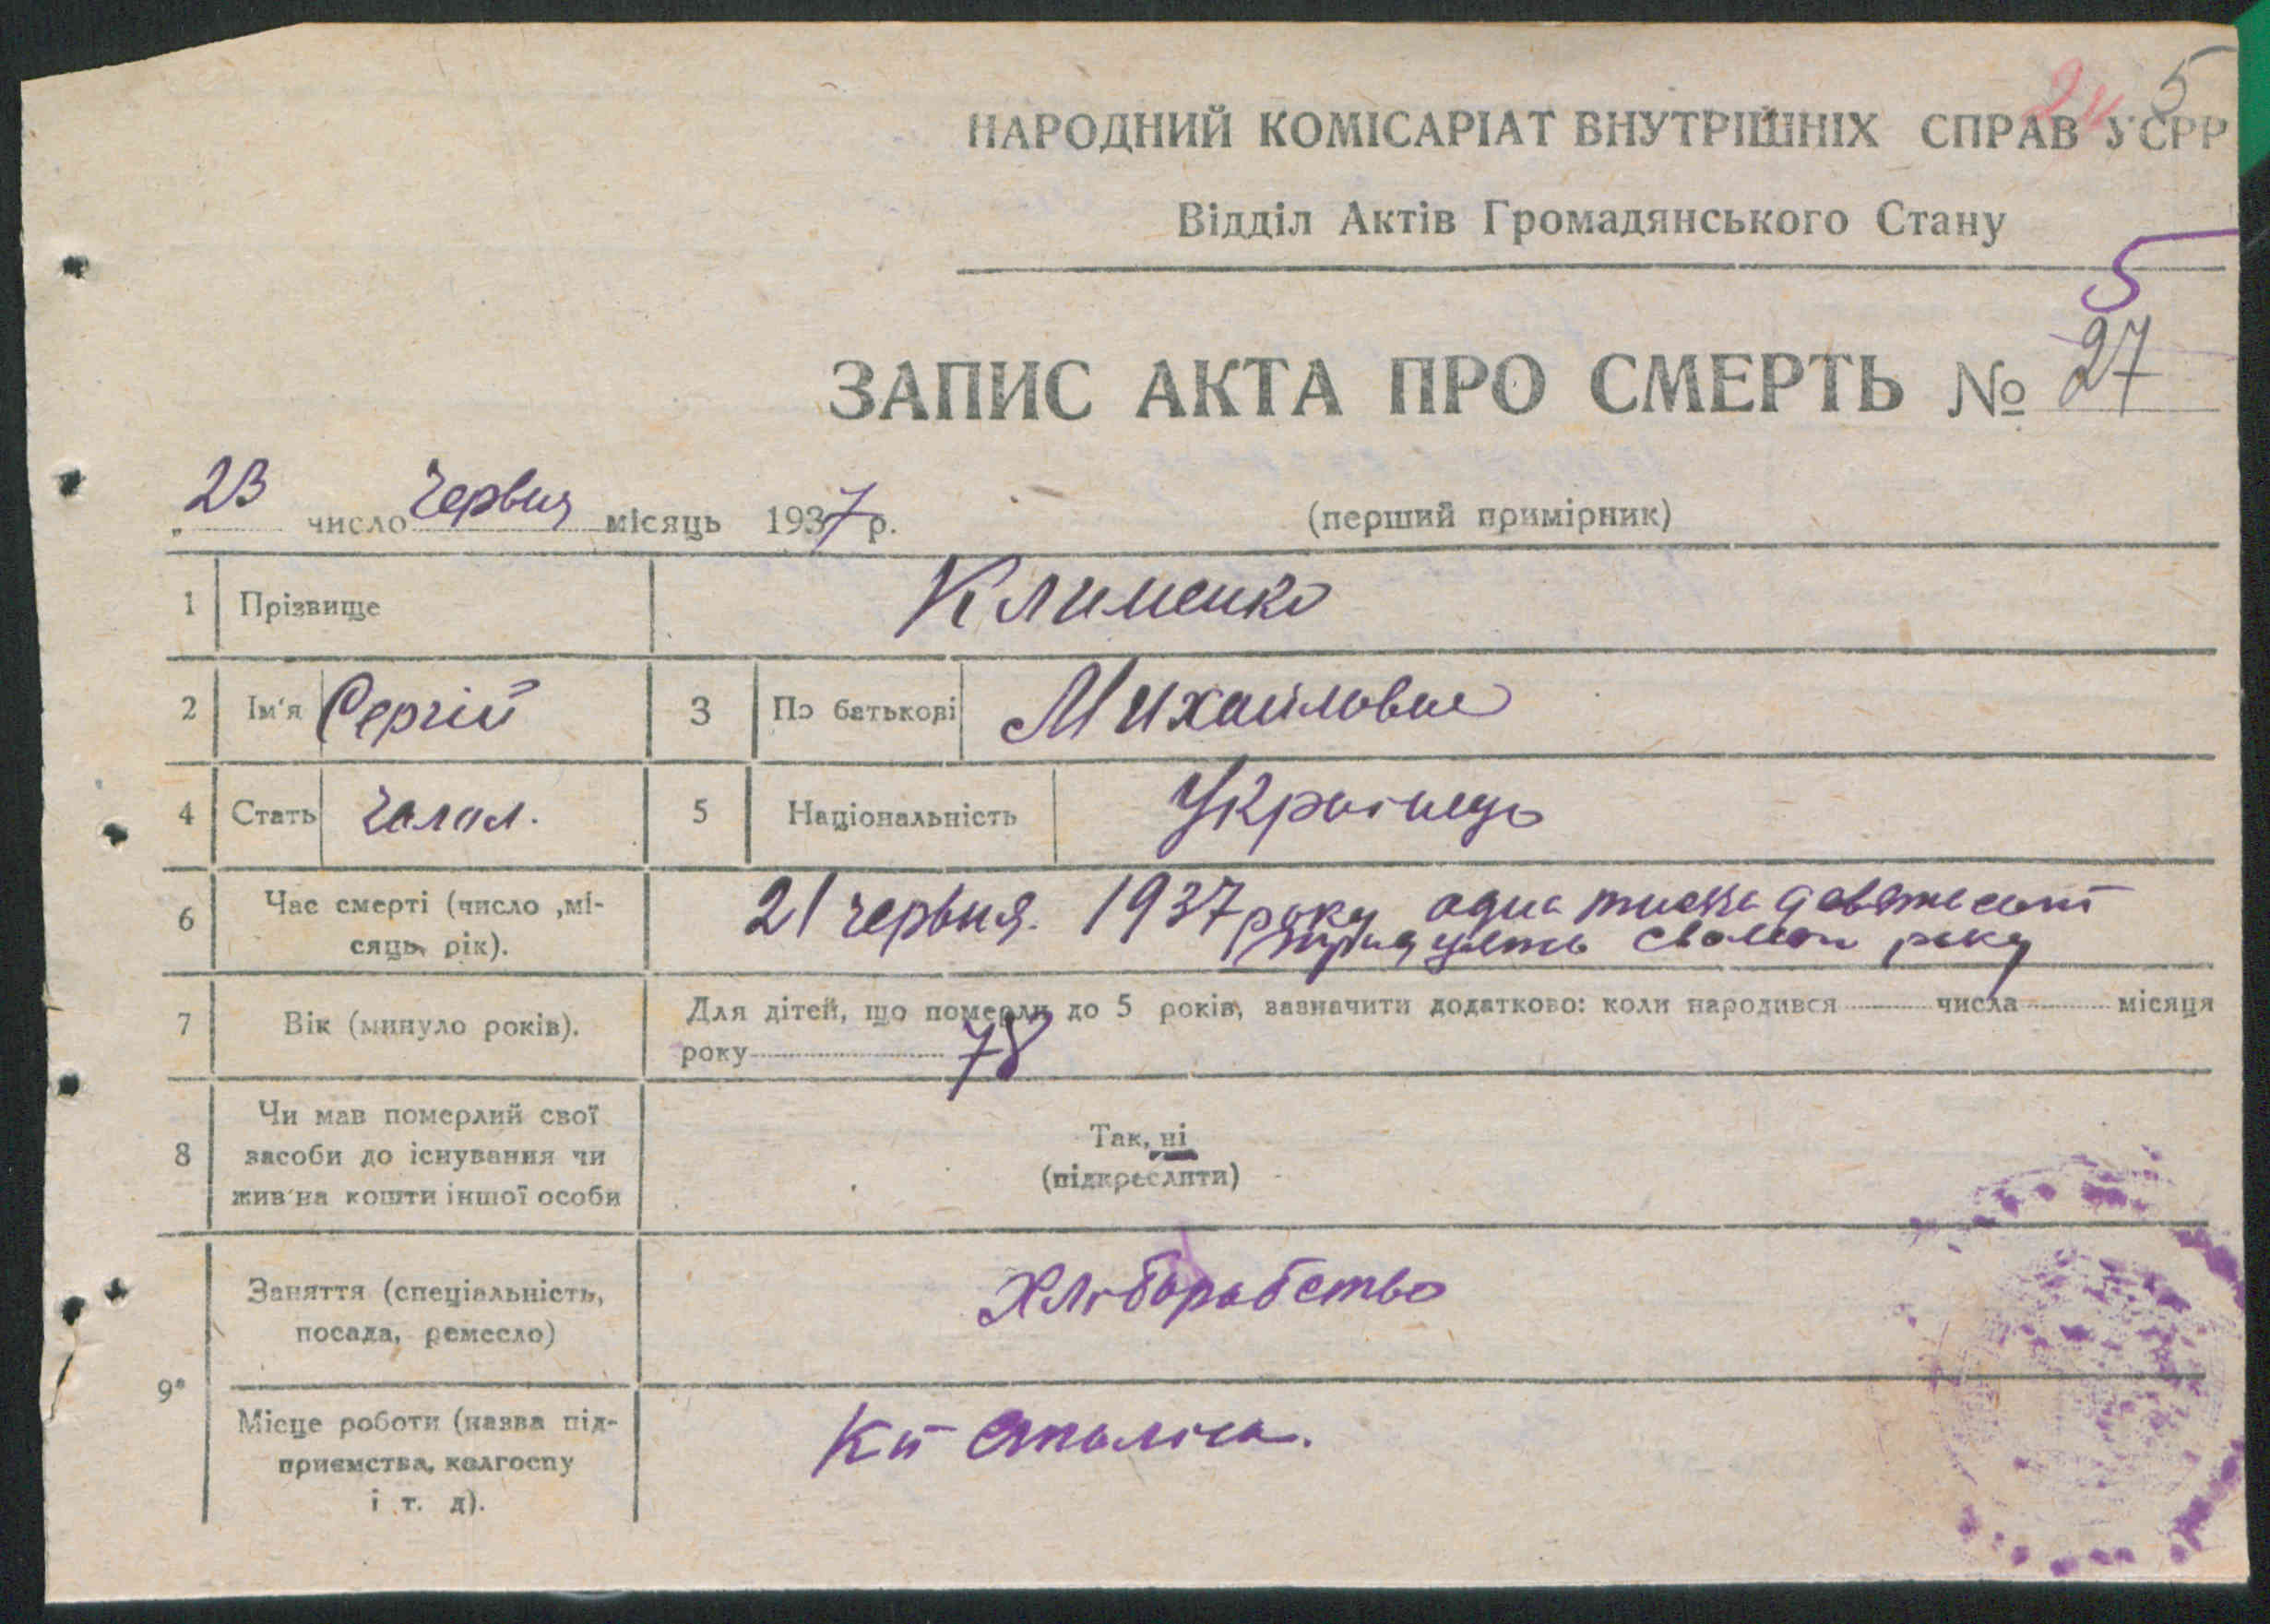 5
НАРОДНИЙ КОМІСАРІАТ ВНУТРІШНІХ СПРАВ УСРР
Відділ Актів Громадянського Стану
5
ЗАПИС АКТА ПРО СМЕРТЬ № 27
„ 23 число Червня місяць 1937 р. (перший примірник)
1 Прізвище Клименко
2 Ім'я Сергій 3 По батькові Михайлович
4 Стать Чолол. 5 Національність Українець
6 Час смерті (число ,мі-
сяць, рік).
21 червня. 1937 року одна тисяча девятсот
тридцять сьомого року
7 Вік (минуло років). Для дітей, що померли до 5 років, зазначити додатково: коли народився числа місяця
року 78
8 Чи мав померлий свої
засоби до існування чи
жив на кошти іншої особи
Так, ні
(підкреслити)
9*
Заняття (спеціальність,
посада, ремесло)
Хліборобство
Місце роботи (назва під-
приємства, колгоспу
і т. д).